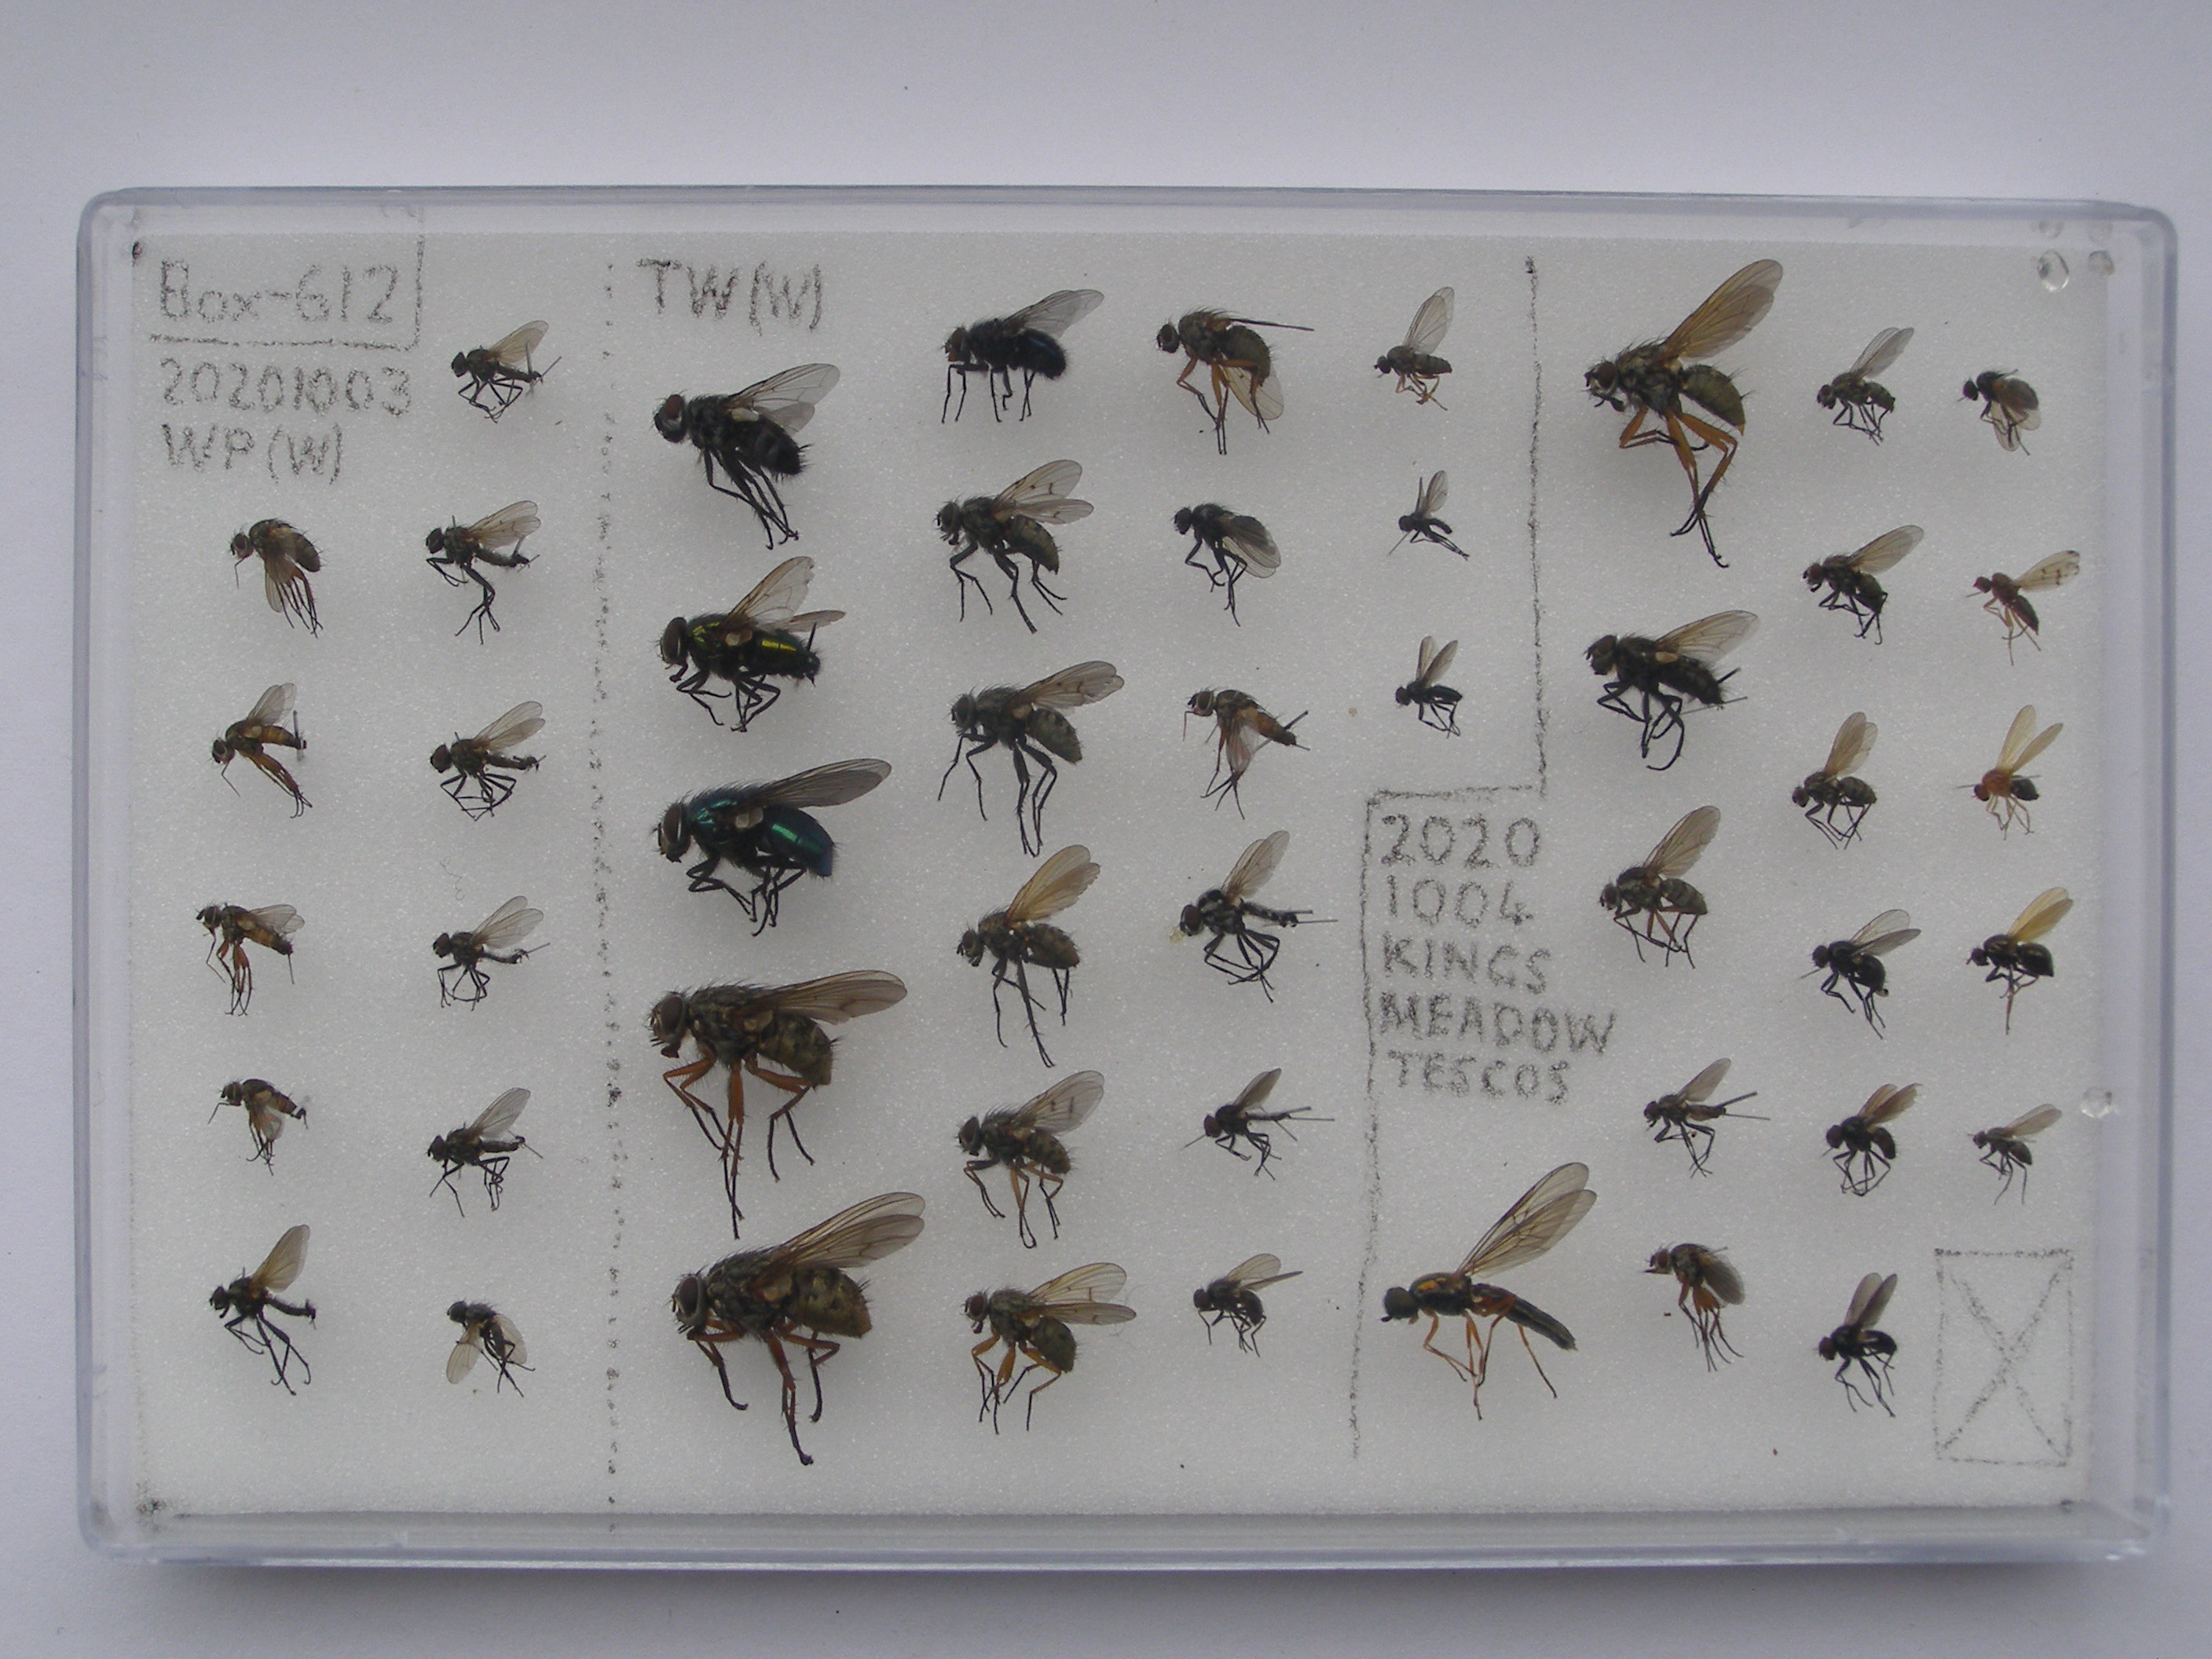 Box-612
20201003
WP(W)
TW(W)
2020
1004
KINGS
MEADOW
TESCOS